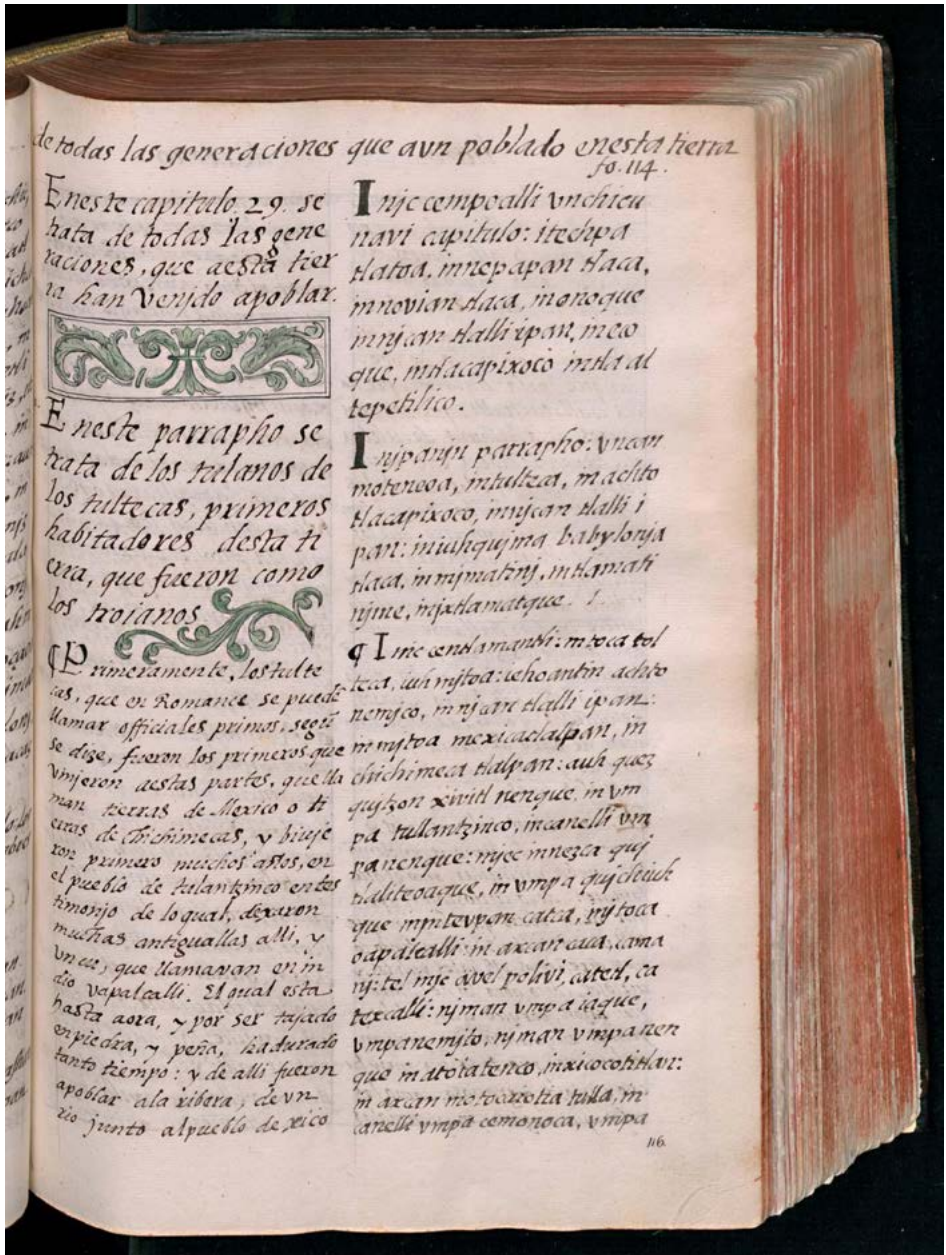 de todas las generaciones que avn poblado enesta tierra
fo. 114.
Eneste capitulo. 29. se
trata de todas las gene
raciones, que aesta tier
ra han venjdo apoblar.
Eneste parrapho se
trata de los tulanos de
los tultecas, primeros
habitadores desta ti
erra, que fueron como
los troianos
¶ Primeramente, los tulte
cas, que en Romance se puedē
llamar officiales primos, segū
se dize, fueron los primeros que
vinjeron aestas partes, que lla
man tierras de Mexico o ti
erras de Chichimecas, y biuje
ron primero muchos años, en
el pueblo de tulantzinco en tes
timonjo de lo qual, dexaron
muchas antiguallas alli, y
vn cu, que llamavan en in
dio vapalcalli. El qual esta
hasta aora, y por ser tajado
en piedra, y peña, ha durado
tanto tiempo: y de alli fueron
apoblar ala ribera, de vn
rio junto alpueblo de xico
Injc cempoalli vnchicu
navi capitulo: itechpa
tlatoa, innepapan tlaca,
innovian tlaca, inonoque
innjcan tlalli ipan, ineco
que, intlacapixoco intla al
tepetilico.
Injpanjn parrapho: vncan
moteneoa, intulteca, in achto
tlacapixoco, innjcan tlalli i
pan: iniuhqujma babylonja
tlaca, in mjmatinj, in tlamati
njme, injxtlamatque.
¶ Injc centlamantli: mtoca tol
teca, iuh mjtoa: iehoantin achto
nemjco, in njcan tlalli ipan:
in mjtoa mexicatlalpan, in
chichimeca tlalpan: auh quez
qujtzon xivitl nenque, in vm
pa tullantzinco, in canelli vm
pa nenque: mjec in nezca quj
tlaliteoaque, in vmpa qujchiuh
que injnteupan catca, injtoca
oapalcalli: in axcan caca, canma
nj: tel injc avel polivi, ca tetl, ca
texcalli: njman vmpa iaque,
vmpa nemjto, njman vmpa nen
que in atoiatenco, in xicocotitlan:
in axcan motocaiotia tulla, in
canelli vmpa cemonoca, vmpa
116.